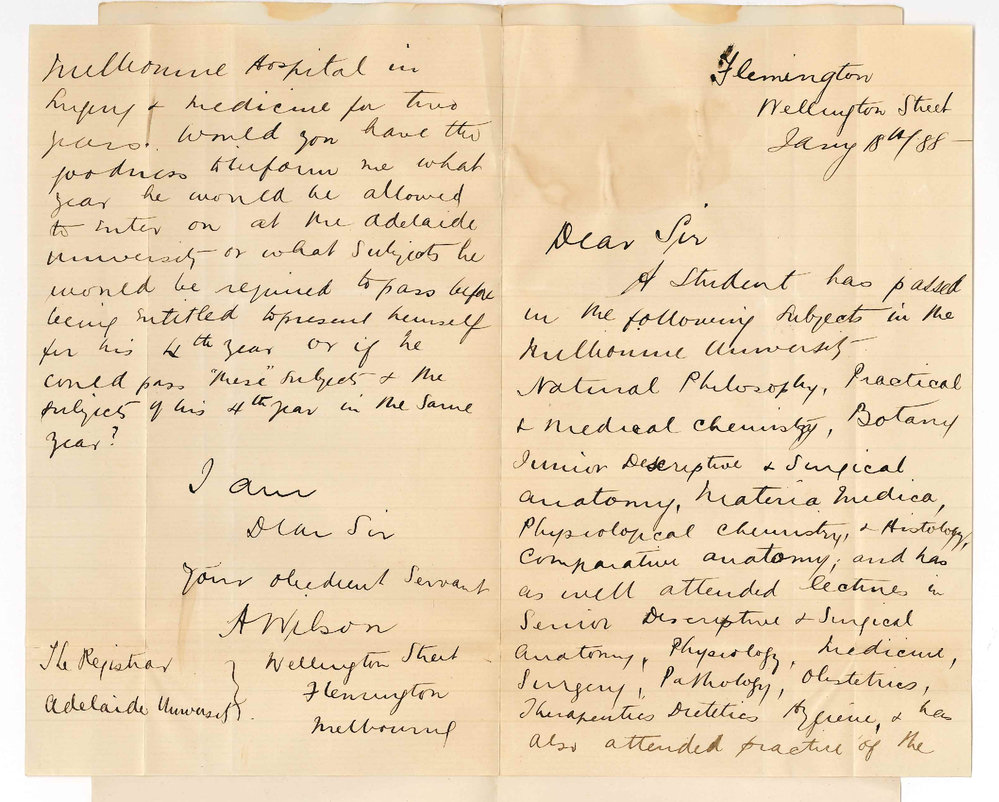 Flemington
Wellington Street
Jany 18th/88
Dear Sir
A Student has passed
in the following subjects in the
Melbourne University
Natural Philosophy, Practical
& medical chemistry, Botany
Junior Descriptive & Surgical
anatomy, Materia Medica,
Physiological Chemistry, & Histology,
Comparative anatomy; and has
as well attended lectures in
Senior Descriptive & Surgical
Anatomy, Physiology, Medicine,
Surgery, Pathology, Obstetrics,
Therapeutics Dietetics Hygiene, & has
also attended practice of the
Melbourne Hospital in
Surgery & medicine for two
years. Would you have the
goodness to inform me what
year he would be allowed
to enter on at the Adelaide
University or what Subjects he
would be required to pass before
being entitled to present himself
for his 4th year or if he
could pass "these" subjects & the
subjects of his 4th year in the same
year?
I am
Dear Sir
Your obedient Servant
A Wilson
Wellington Street
Flemington
Melbourne
The Registrar
Adelaide University.